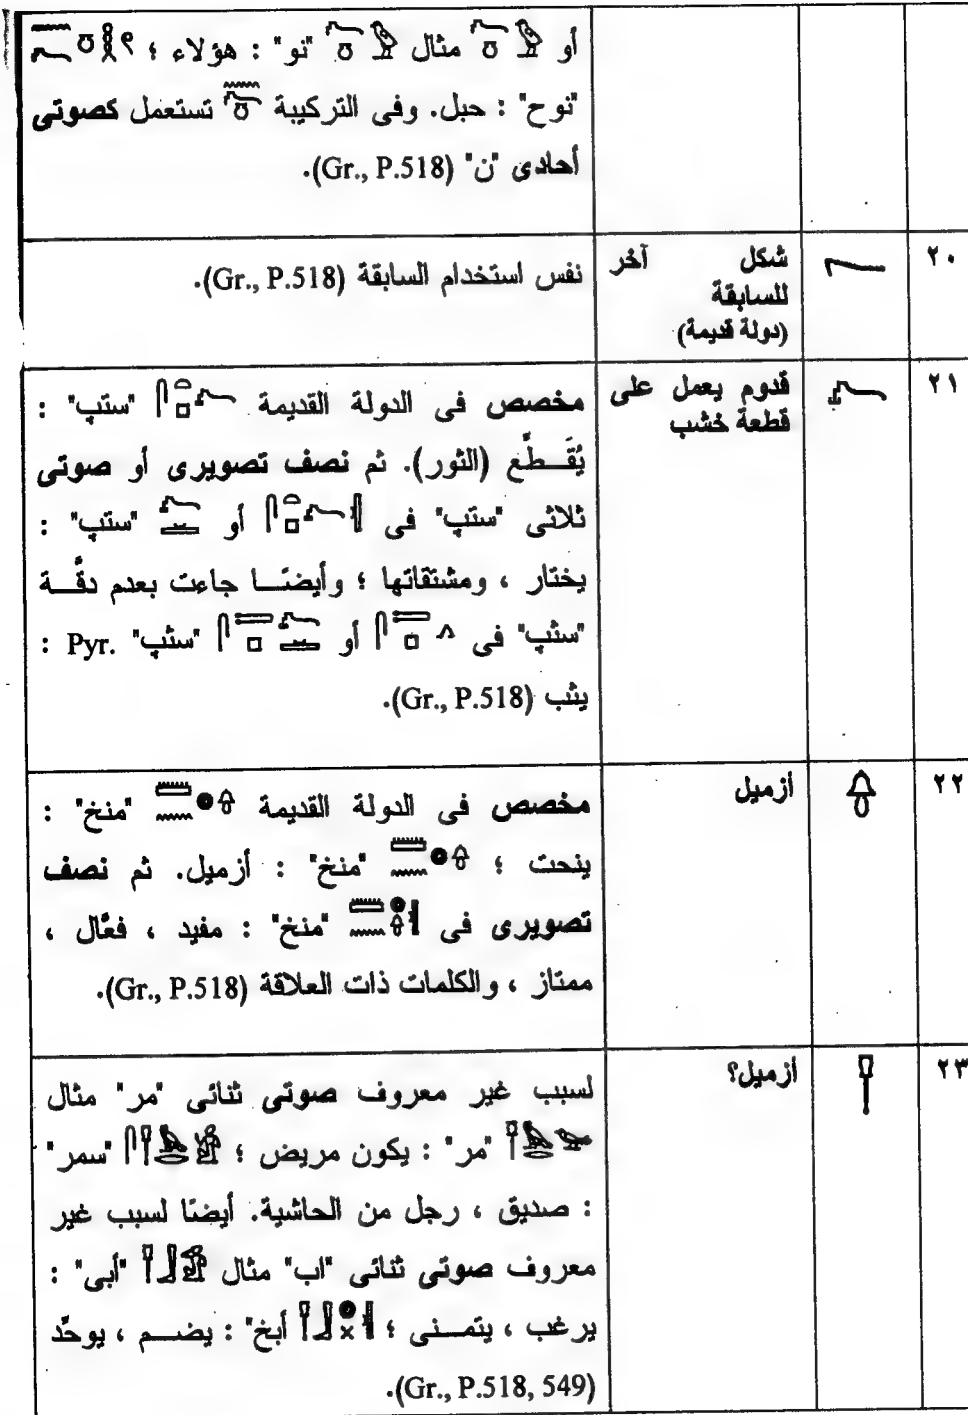 أو 𓌴𓏌𓅱 مثال 𓌴𓏌𓅱 "نو" : هؤلاء ؛ 𓈖𓌴𓏌𓎛𓍢
"نوح" : حبل. وفى التركيبة 𓈖𓌴𓏌 تستعمل كصوتى
أحادى "ن" (Gr., P.518).
٢٠
شكل آخر
للسابقة
(دولة قديمة)
نفس استخدام السابقة (Gr., P.518).
٢١ 𓍉
قدوم يعمل على
قطعة خشب
مخصص فى الدولة القديمة 𓋴𓏏𓊪𓍉 "ستب" :
يُقَـطِّع (الثور). ثم نصف تصويرى أو صوتى
ثلاثى "ستب" فى 𓋴𓏏𓊪𓍉𓏛 أو "ستب" :
يختار ، ومشتقاتها ؛ وأيضًا جاءت بعدم دقَّـة
"سثب" فى 𓋴𓍿𓊪𓂻 أو 𓋴𓍿𓊪𓍉 "سثب" Pyr. :
يثب (Gr., P.518).
٢٢ 𓍊 أزميل
مخصص فى الدولة القديمة 𓏠𓈖𓐍𓍊 "منخ" :
ينحت ؛ 𓏠𓈖𓐍𓍊 "منخ" : أزميل. ثم نصف
تصويرى فى 𓏠𓈖𓐍𓍊𓏛 "منخ" : مفيد ، فعَّال ،
ممتاز ، والكلمات ذات العلاقة (Gr., P.518).
٢٣ 𓍋 أزميل؟
لسبب غير معروف صوتى ثنائى "مر" مثال
𓍋𓅓𓂋𓅪 "مر" : يكون مريض ؛ 𓋴𓍋𓅓𓂋𓀀 "سمر"
: صديق ، رجل من الحاشية. أيضًا لسبب غير
معروف صوتى ثنائى "اب" مثال 𓇋𓍋𓃀𓀁 "أبى" :
يرغب ، يتمـنى ؛ 𓇋𓍋𓃀𓐍𓏴𓏛 أبخ" : يضـم ، يوحِّد
(Gr., P.518, 549).